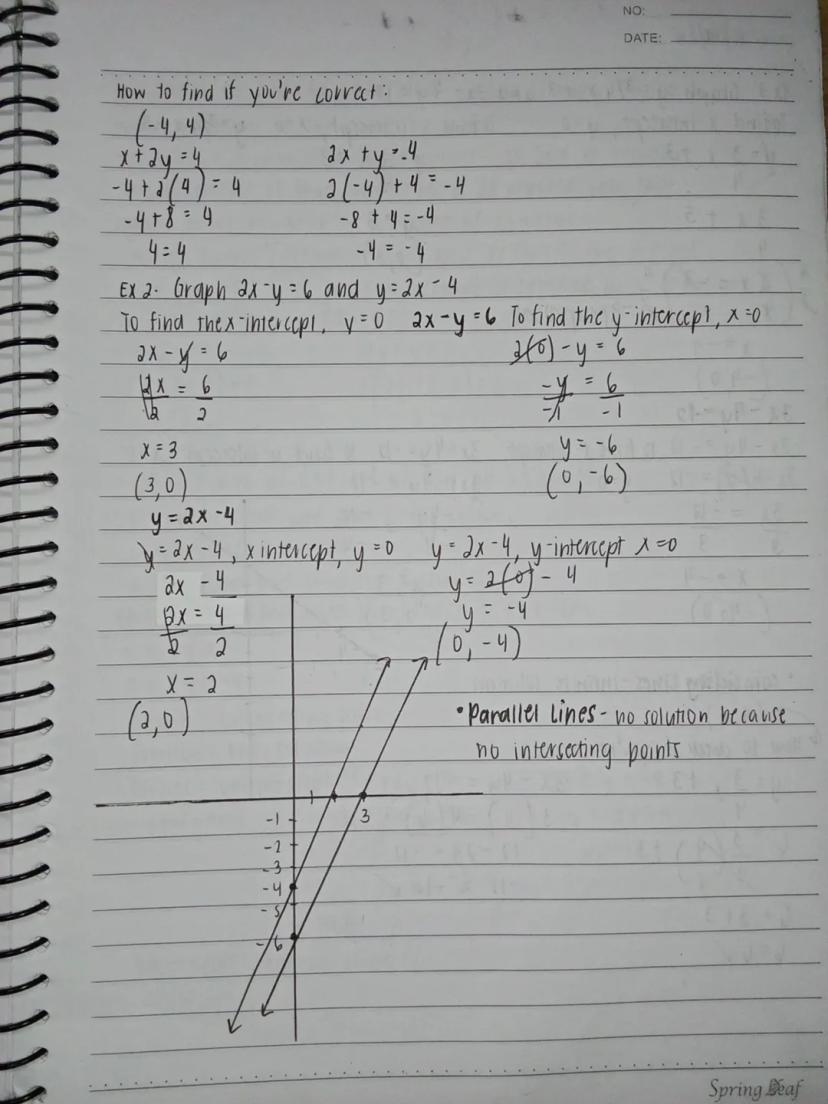 NO:
DATE:
How to find if you're correct:
(-4, 4)
x + 2y = 4
-4 + 2(4) = 4
-4 + 8 = 4
4 = 4
2x + y = -4
2(-4) + 4 = -4
-8 + 4 = -4
-4 = -4
Ex 2. Graph 2x - y = 6 and y = 2x - 4
To find the x-intercept, y = 0 2x - y = 6 To find the y-intercept, x = 0
2x - y = 6
2x = 6
2 2
x = 3
(3, 0)
2(0) - y = 6
-y = 6
-1 -1
y = -6
(0, -6)
y = 2x - 4
y = 2x - 4, x intercept, y = 0
2x - 4
2x = 4
2 2
x = 2
(2, 0)
y = 2x - 4, y-intercept x = 0
y = 2(0) - 4
y = -4
(0, -4)
• Parallel Lines - no solution because
no intersecting points
1
3
-1
-2
-3
-4
-5
-6
Spring Leaf